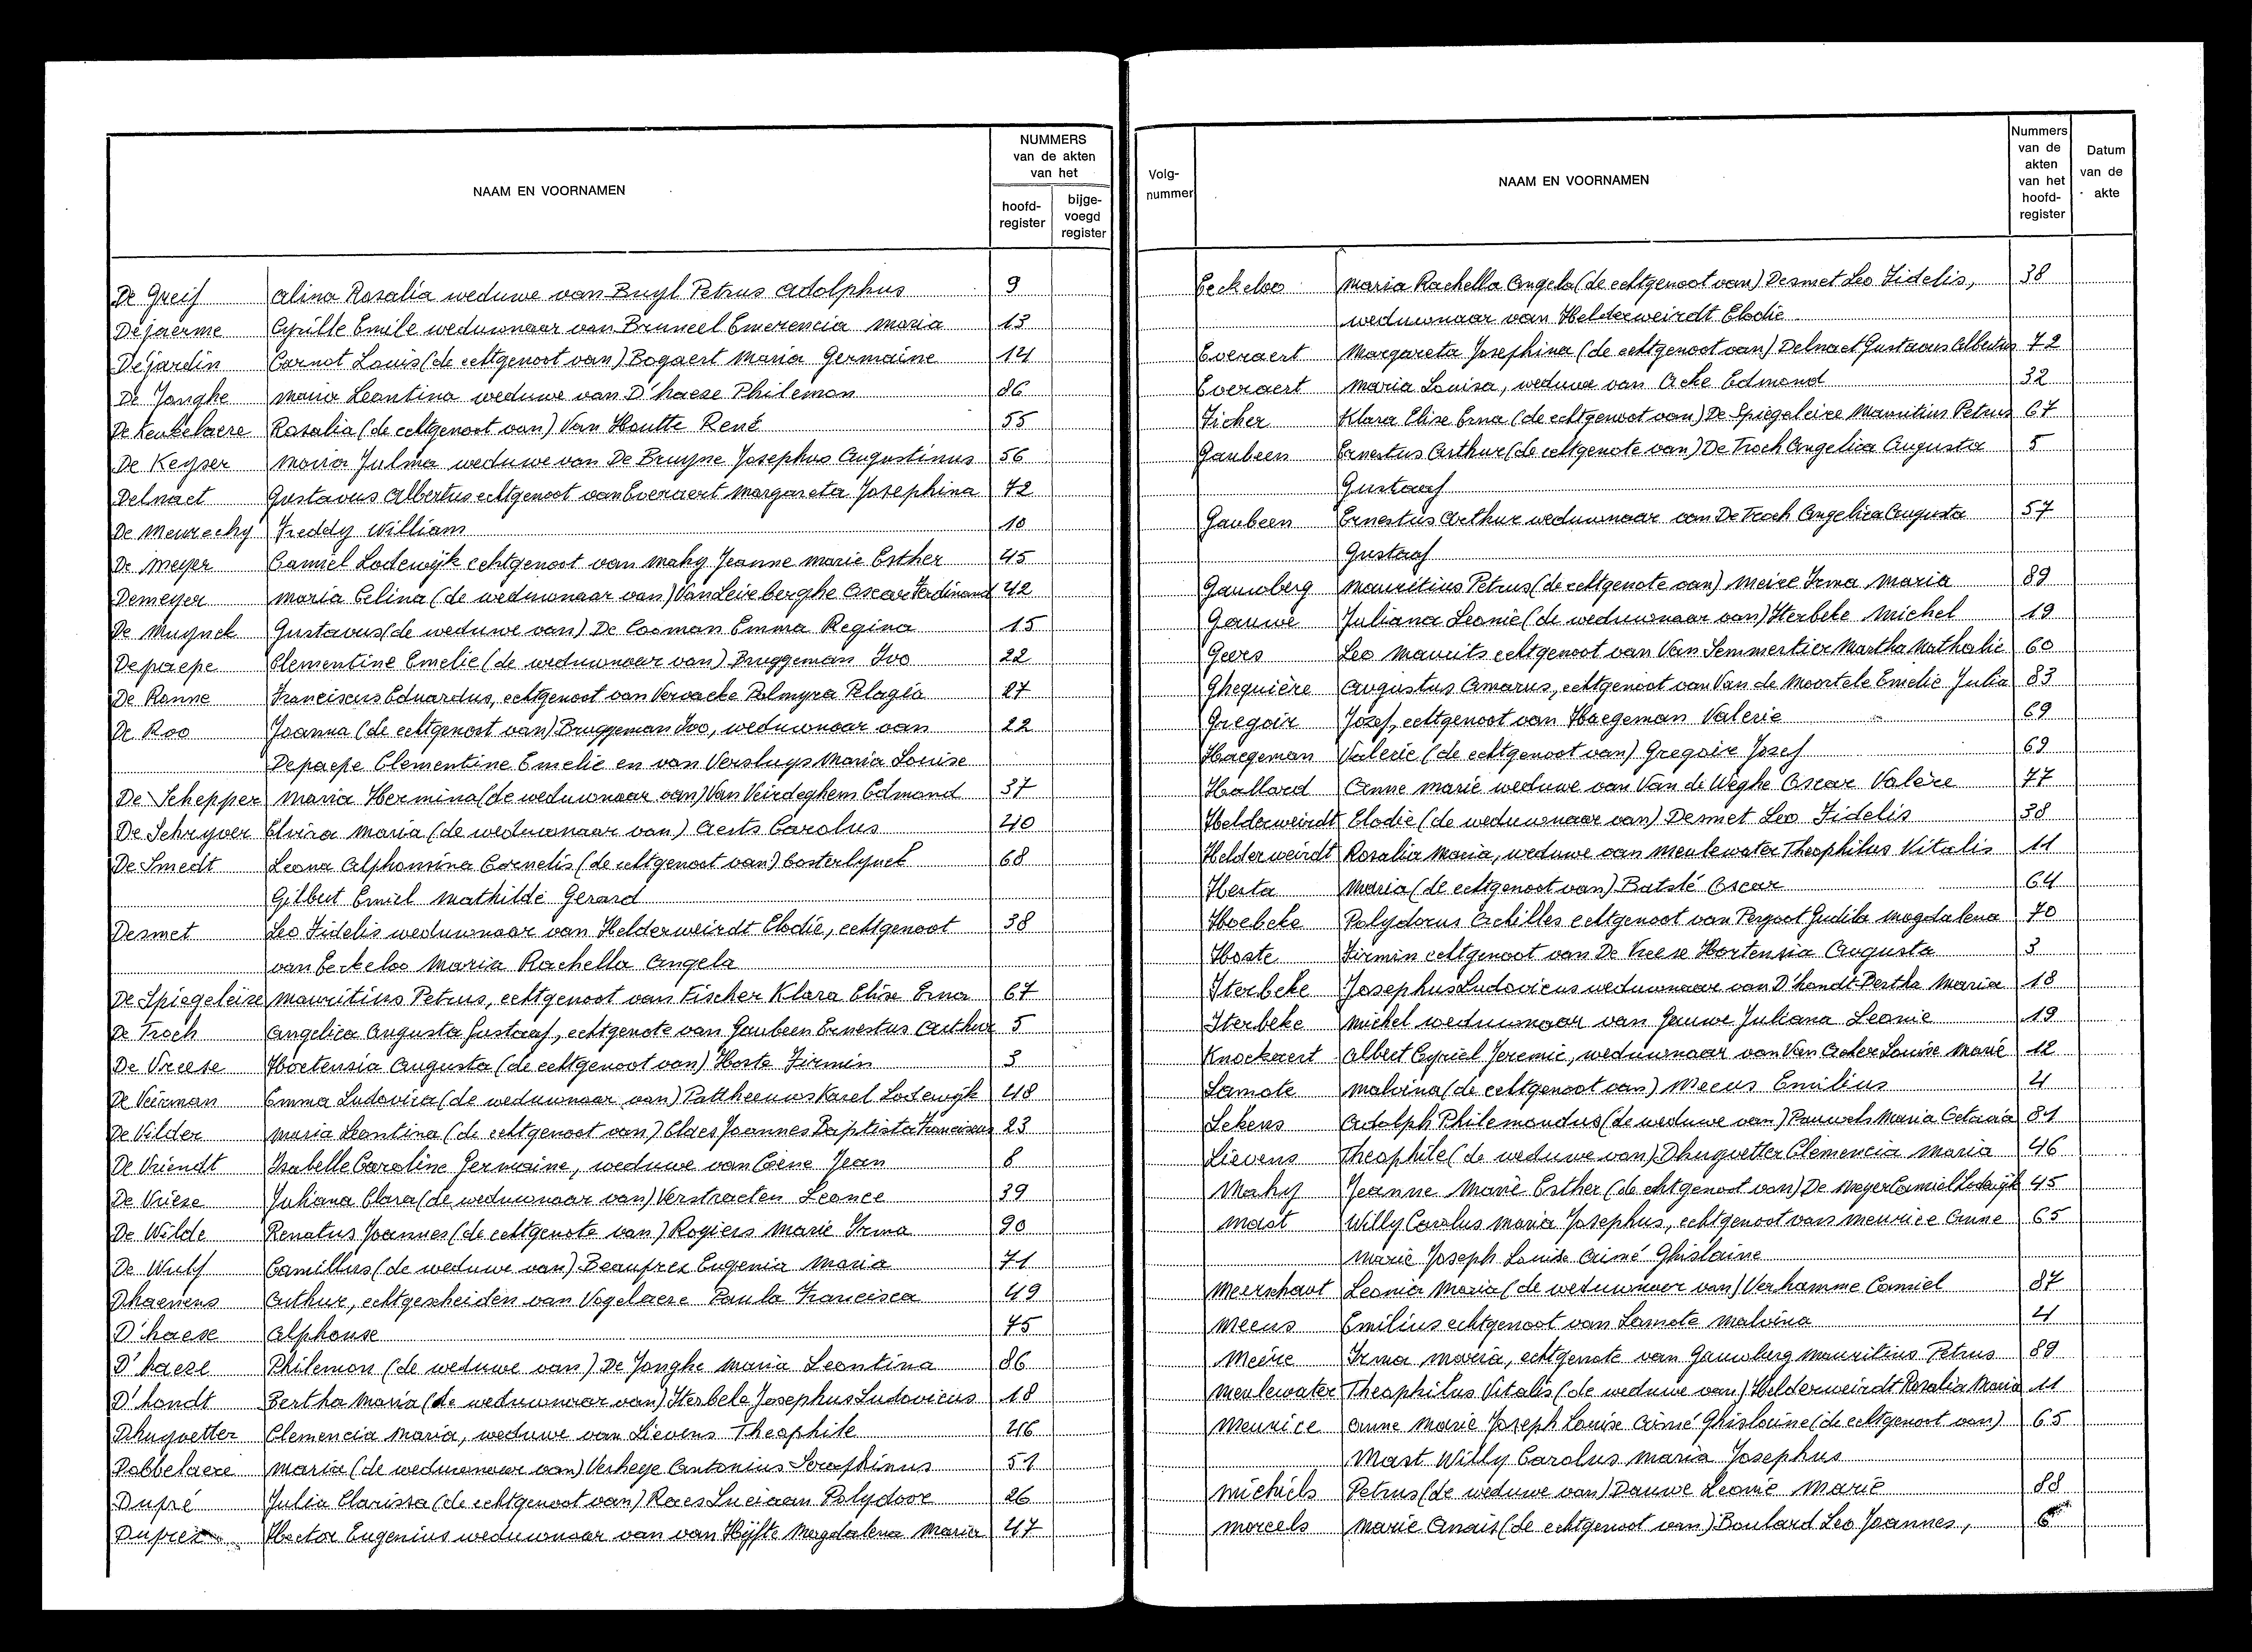 NAAM EN VOORNAMEN
NUMMERS
van de akten
van het
hoofd-
register
bijge-
voegd
register
De Greif Alina Rosalia weduwe van Buyl Petrus Adolphus 9
Dejaerme Cyrille Emile weduwnaar van Bruneel Emerencia Maria 13
Dejardin Carnot Louis (de echtgenoot van) Bogaert Maria Germaine 14
De Jonghe Maria Leontina weduwe van D'haese Philemon 86
De Keukelaere Rosalia (de echtgenoot van) Van Houtte René 55
De Keyser Maria Julma weduwe van De Bruyne Josephus Augustinus 56
Delnaet Gustavus Albertus echtgenoot van Everaert Margareta Josephina 72
De Meurechy Freddy William 10
De Meyer Camiel Lodewijk echtgenoot van Mahy Jeanne Marie Esther 45
Demeyer Maria Celina (de weduwnaar van) Van Leirberghe Oscar Ferdinand 42
De Muynck Gustavus (de weduwe van) De Cooman Emma Regina 15
Depaepe Clementine Emelie (de weduwnaar van) Bruggeman Ivo 22
De Ranne Franciscus Eduardus, echtgenoot van Vervacke Palmyra Pelagia 27
De Roo Joanna (de echtgenoot van) Bruggeman Ivo, weduwnaar van 22
Depaepe Clementine Emelie en van Versluys Maria Louise
De Schepper Maria Hermina (de weduwnaar van) Van Veirdeghem Edmond 37
De Schryver Elvira Maria (de weduwnaar van) Aerts Carolus 40
De Smedt Leona Alphonsina Cornelis (de echtgenoot van) Oosterlynck 68
Gilbert Emiel Mathilde Gerard
Desmet Leo Fidelis weduwnaar van Helderweirdt Elodie, echtgenoot 38
van Eeckeloo Maria Rachella Angela
De Spiegeleire Mauritius Petrus, echtgenoot van Fischer Klara Elise Erna 67
De Troch Angelica Augusta Gustaaf, echtgenote van Gaubeen Ernestus Arthur 5
De Vreese Hortensia Augusta (de echtgenoot van) Hoste Firmin 3
De Veirman Emma Ludovica (de weduwnaar van) Pattheeuws Karel Lodewijk 48
De Vilder Maria Leontina (de echtgenoot van) Claes Joannes Baptista Franciscus 23
De Vriendt Isabelle Caroline Germaine, weduwe van Coene Jean 8
De Vriese Juliana Clara (de weduwnaar van) Verstraeten Leonce 39
De Wilde Renatus Joannes (de echtgenote van) Rogiers Marie Irma 90
De Wulf Camillus (de weduwe van) Beauprez Eugenia Maria 71
Dhaenens Arthur, echtgescheiden van Vogelaere Paula Francisca 49
D'haese Alphonse 75
D'haese Philemon (de weduwe van) De Jonghe Maria Leontina 86
D'hondt Bertha Maria (de weduwnaar van) Iterbeke Josephus Ludovicus 18
Dhuyvetter Clemencia Maria, weduwe van Lievens Theophile 46
Dobbelaere Maria (de weduwnaar van) Verheye Antonius Seraphinus 51
Dupré Julia Clarissa (de echtgenoot van) Raes Luciaan Polydoor 26
Duprez Hector Eugenius weduwnaar van van Hijfte Magdalena Maria 47
Volg-
nummer
NAAM EN VOORNAMEN
Nummers
van de
akten
van het
hoofd-
register
Datum
van de
akte
Eeckeloo Maria Rachella Angela (de echtgenoot van) Desmet Leo Fidelis, 38
weduwnaar van Helderweirdt Elodie
Everaert Margareta Josephina (de echtgenoot van) Delnaet Gustavus Albertus 72
Everaert Maria Louisa, weduwe van Acke Edmond 32
Ficher Klara Elise Erna (de echtgenoot van) De Spiegeleire Mauritius Petrus 67
Gaubeen Ernestus Arthur (de echtgenote van) De Troch Angelica Augusta 5
Gustaaf
Gaubeen Ernestus Arthur weduwnaar van De Troch Angelica Augusta 57
Gustaaf
Gauwberg Mauritius Petrus (de echtgenote van) Meire Irma Maria 89
Gauwe Juliana Leonie (de weduwnaar van) Iterbeke Michel 19
Geers Leo Maurits echtgenoot van Van Semmertier Martha Nathalie 60
Ghequière Augustus Amarus, echtgenoot van Van de Moortele Emelie Julia 83
Gregoir Jozef, echtgenoot van Haegeman Valerie 69
Haegeman Valerie (de echtgenoot van) Gregoir Jozef 69
Hallard Anne Marie weduwe van Van de Weghe Oscar Valère 77
Helderweirdt Elodie (de weduwnaar van) Desmet Leo Fidelis 38
Helderweirdt Rosalia Maria, weduwe van Meulewater Theophilus Vitalis 11
Herta Maria (de echtgenoot van) Batslé Oscar 64
Hoebeke Polydorus Achilles echtgenoot van Perpoot Gudila Magdalena 70
Hoste Firmin echtgenoot van De Vreese Hortensia Augusta 3
Iterbeke Josephus Ludovicus weduwnaar van D'hondt Bertha Maria 18
Iterbeke Michel weduwnaar van Gauwe Juliana Leonie 19
Knockaert Albert Cyriel Jeremie, weduwnaar van Van Acker Louise Marie 12
Lamote Malvina (de echtgenoot van) Meeus Emilius 4
Lekens Adolph Philemondus (de weduwe van) Pauwels Maria Octavia 81
Lievens Theophile (de weduwe van) Dhuyvetter Clemencia Maria 46
Mahy Jeanne Marie Esther (de echtgenoot van) De Meyer Camiel Lodewijk 45
Mast Willy Carolus Maria Josephus, echtgenoot van Meurice Anne 65
Marie Joseph Louise Aimé Ghislaine
Meerschaut Leonia Maria (de weduwnaar van) Verhamme Camiel 87
Meeus Emilius echtgenoot van Lamote Malvina 4
Meire Irma Maria, echtgenote van Gauwberg Mauritius Petrus 89
Meulewater Theophilus Vitalis (de weduwe van) Helderweirdt Rosalia Maria 11
Meurice Anne Marie Joseph Louise Aimé Ghislaine (de echtgenoot van) 65
Mast Willy Carolus Maria Josephus
Michiels Petrus (de weduwe van) Dauwe Leonie Marie 88
Morcels Marie Anais (de echtgenoot van) Boulard Leo Joannes, 6